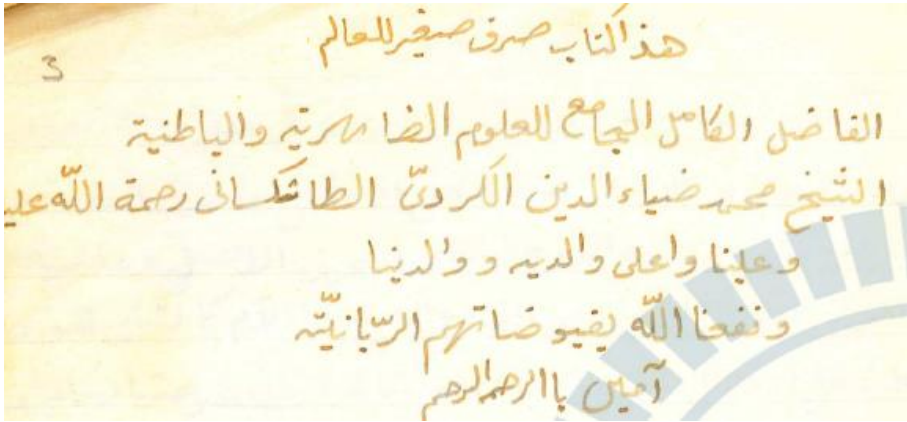 هذا كتاب صرف صغير للعالم
3
الفاضل الكامل الجامع للعلوم الضاهرية والباطنية
الشيخ محمد ضياء الدين الكرديّ الطاشكسانى رحمة اللّٰه عليه
وعلينا واعلى والديه ووالدينا
ونفعنا اللّٰه بفيوضاتهم الربّانيّة
آمين يا الرحم الرحم